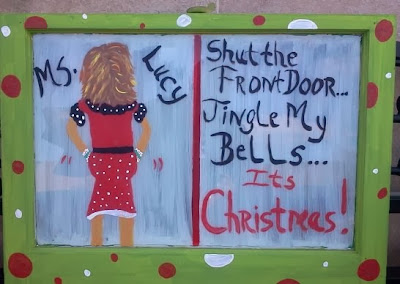 Ms. Lucy
Shut the
Front Door...
Jingle My
Bells...
Its
Christmas!